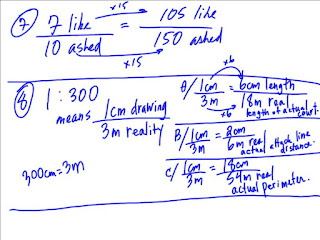 7
×15
7 like = 105 like
10 ashed 150 ashed
×15
8
1 : 300
means 1cm drawing
3m reality
300cm = 3m
A/ 1cm = 6cm length
3m 18m real
×6
length of actual court.
B/ 1cm = 2cm
3m 6m real
actual attack line
distance.
C/ 1cm = 18cm
3m 54m real
actual perimeter.